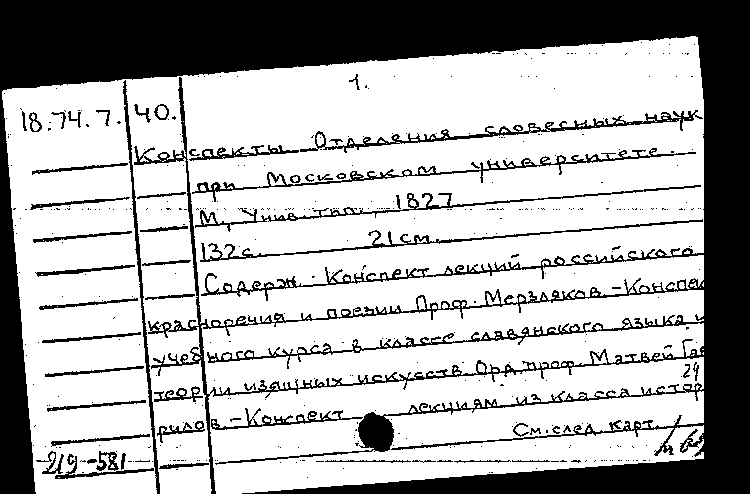 1.
18.74.7. 40.
Конспекты Отделения словесных наук
при Московском университете.
М., Унив. тип., 1827
132с. 21см.
Содерж.: Конспект лекций российского
красноречия и поезии Проф. Мерзляков.-Конспек
учебного курса в классе славянского языка и
теории изящных искусств. Орд. проф. Матвей Гав
29
рилов.-Конспект лекциям из класса истор
См. след. карт.
219-581